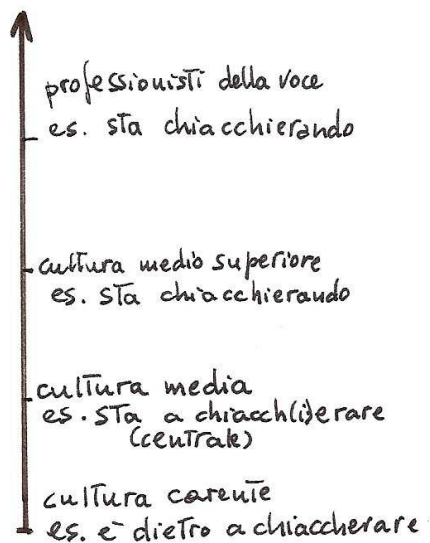 professionisti della voce
es. sta chiacchierando
cultura medio superiore
es. sta chiacchierando
cultura media
es. sta a chiacch(i)erare
(centrale)
cultura carente
es. è dietro a chiaccherare